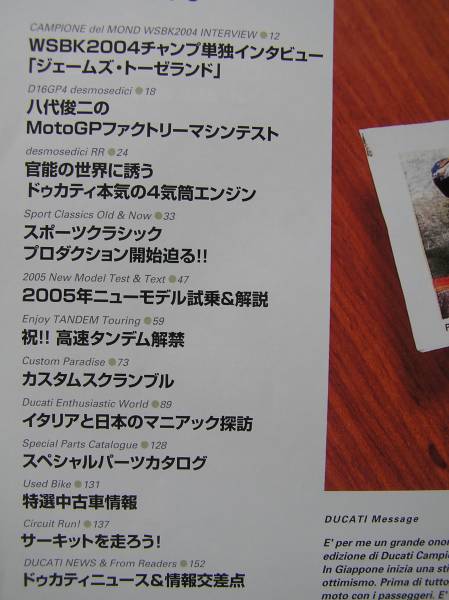 CAMPIONE del MOND WSBK2004 INTERVIEW●12
WSBK2004チャンプ単独インタビュー
「ジェームズ・トーゼランド」
D16GP4 desmosedici●18
八代俊二の
MotoGPファクトリーマシンテスト
desmosedici RR●24
官能の世界に誘う
ドゥカティ本気の4気筒エンジン
Sport Classics Old & Now●33
スポーツクラシック
プロダクション開始迫る!!
2005 New Model Test & Text●47
2005年ニューモデル試乗&解説
Enjoy TANDEM Touring●59
祝!! 高速タンデム解禁
Custom Paradise●73
カスタムスクランブル
Ducati Enthusiastic World●89
イタリアと日本のマニアック探訪
Special Parts Catalogue●128
スペシャルパーツカタログ
Used Bike●131
特選中古車情報
Circuit Run!●137
サーキットを走ろう!
DUCATI NEWS & From Readers●152
ドゥカティニュース&情報交差点
DUCATI Message
E' per me un grande
edizione di Ducati
In Giappone inizia una
ottimismo. Prima di tutto
moto con i passeggeri. E'